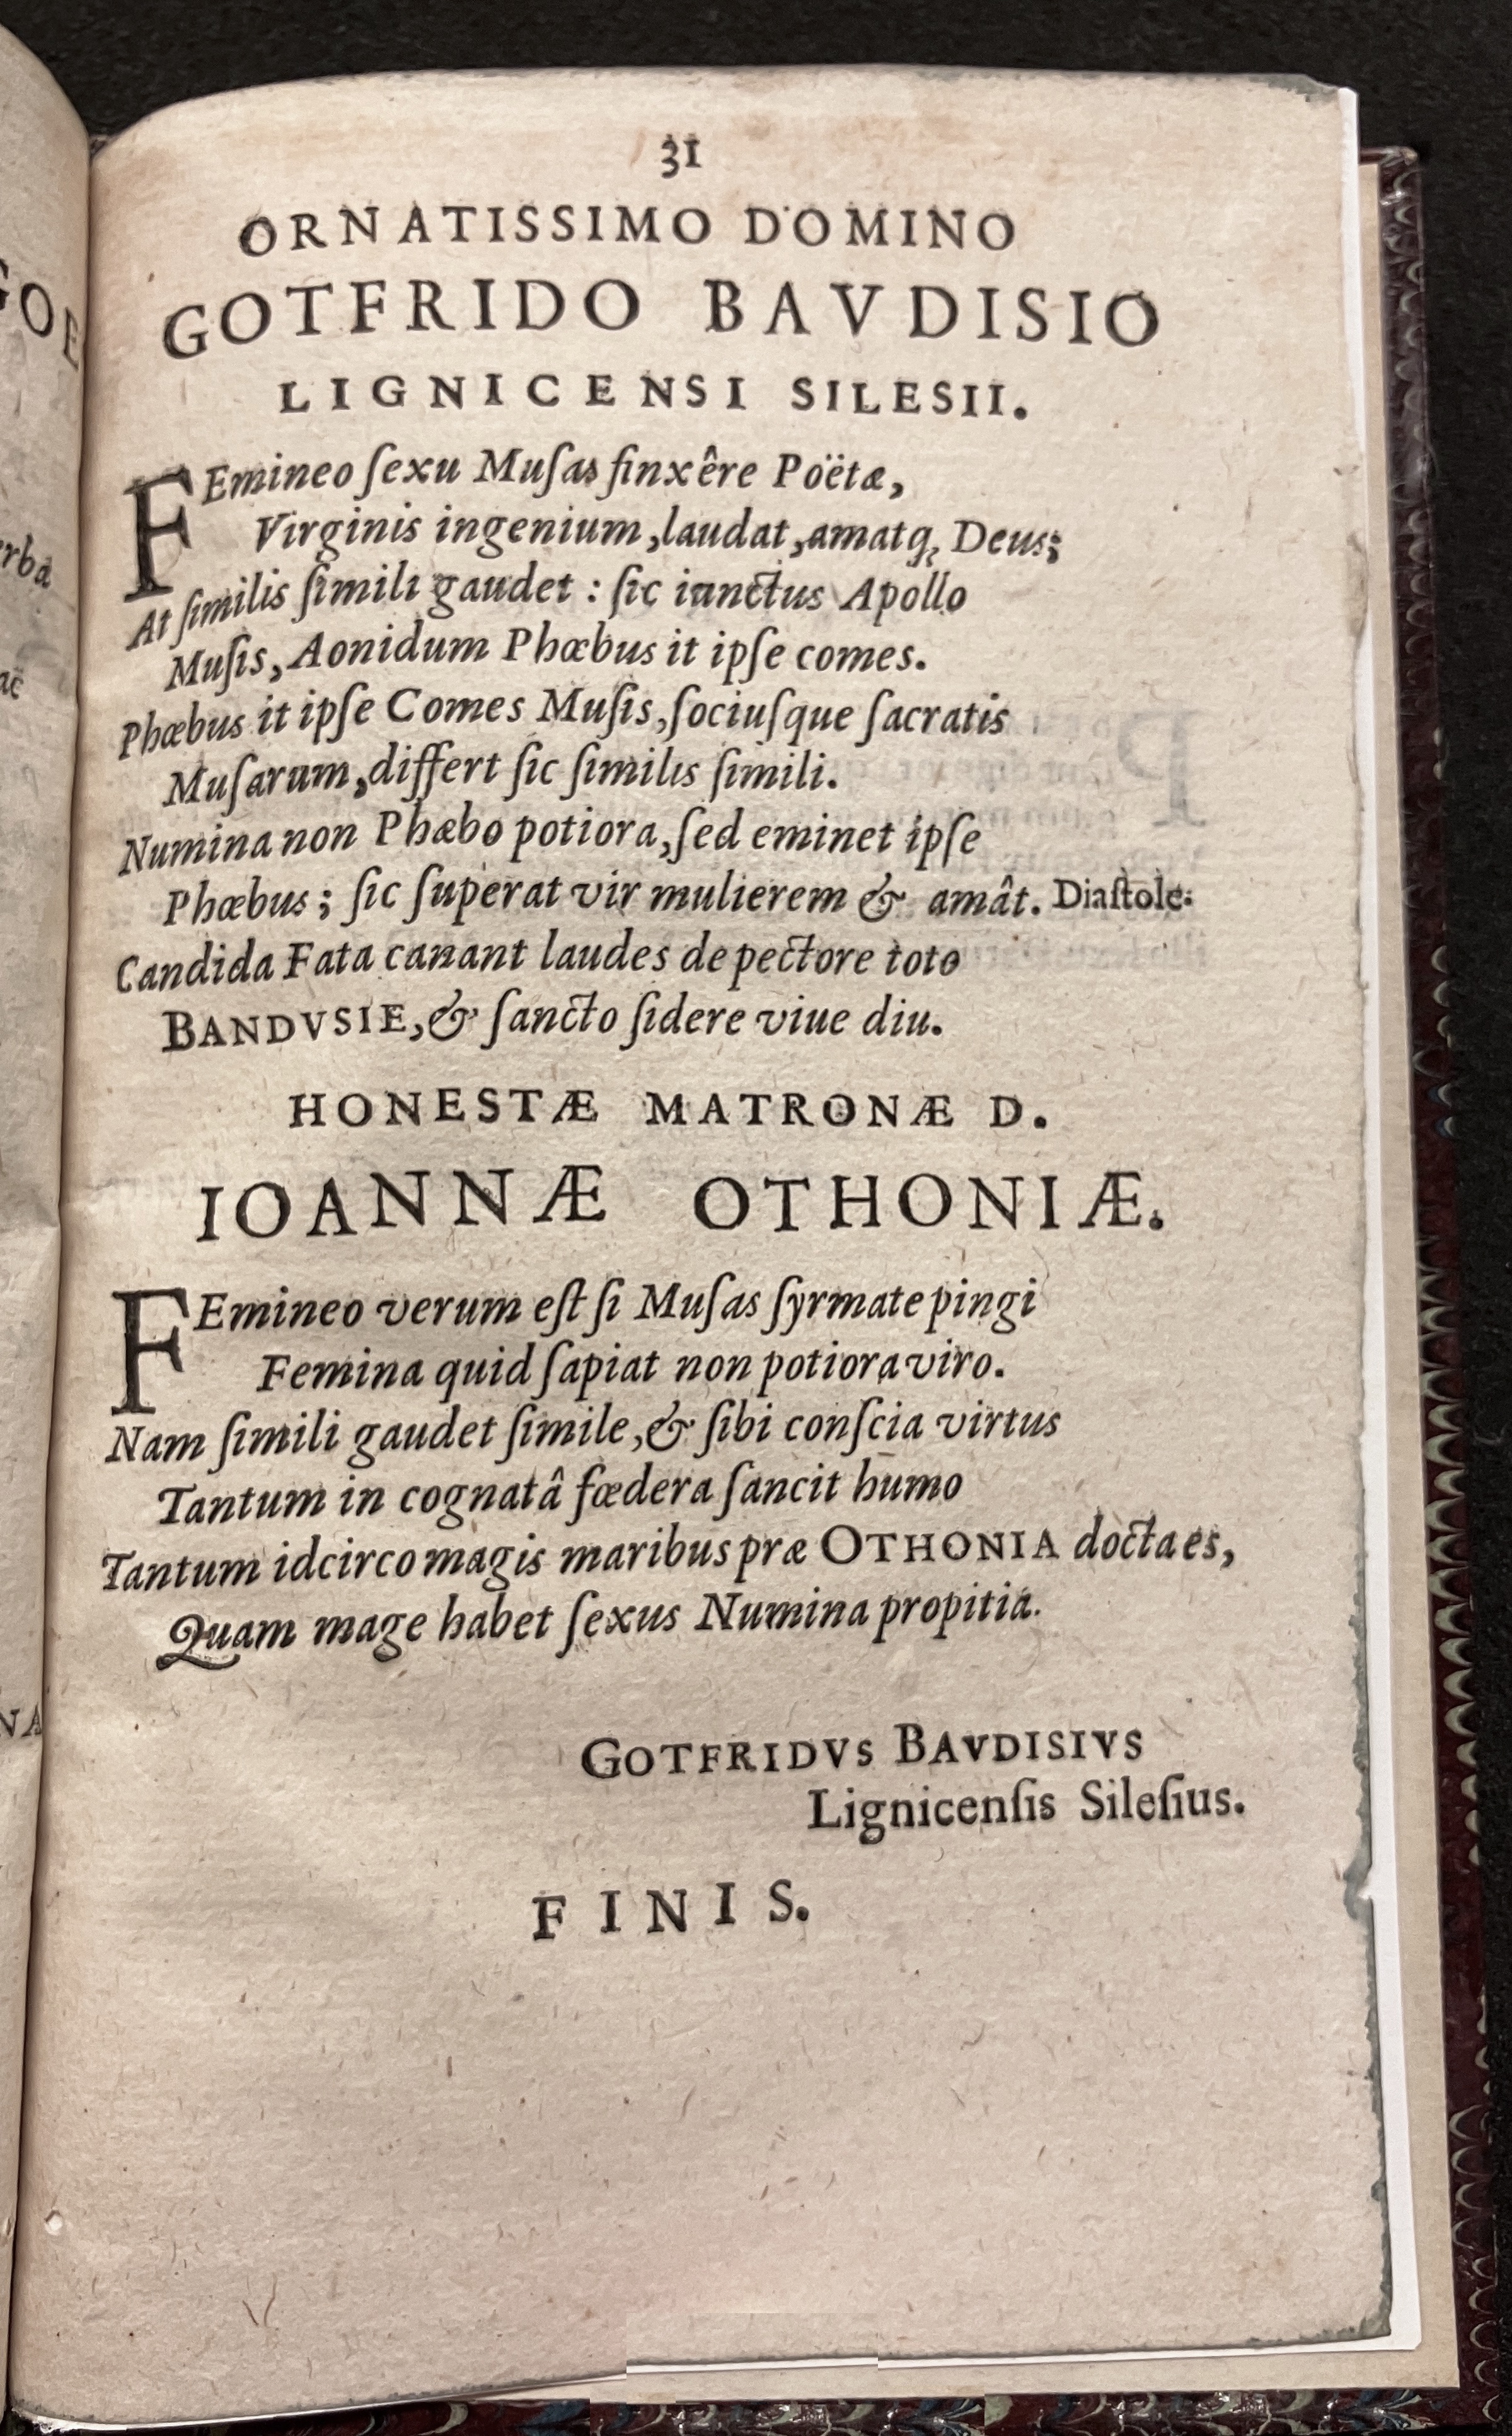 31
ORNATISSIMO DOMINO
GOTFRIDO BAVDISIO
LIGNICENSI SILESII.
FEmineo ſexu Muſas finxêre Poëtæ,
Virginis ingenium, laudat, amatq; Deus;
At ſimilis ſimili gaudet : ſic iunctus Apollo
Muſis, Aonidum Phœbus it ipſe comes.
Phœbus it ipſe Comes Muſis, ſociuſque ſacratis
Muſarum, differt ſic ſimilis ſimili.
Numina non Phœbo potiora, ſed eminet ipſe
Phœbus; ſic ſuperat vir mulierem & amât. Diaſtole:
Candida Fata canant laudes de pectore toto
BANDVSIE, & ſancto ſidere viue diu.
HONESTÆ MATRONÆ D.
IOANNÆ OTHONIÆ.
FEmineo verum eſt ſi Muſas ſyrmate pingi
Femina quid ſapiat non potiora viro.
Nam ſimili gaudet ſimile, & ſibi conſcia virtus
Tantum in cognatâ fœdera ſancit humo
Tantum idcirco magis maribus præ OTHONIA docta es,
Quam mage habet ſexus Numina propitia.
GOTFRIDVS BAVDISIVS
Lignicenſis Sileſius.
FINIS.
GOE
erba
ac
NA